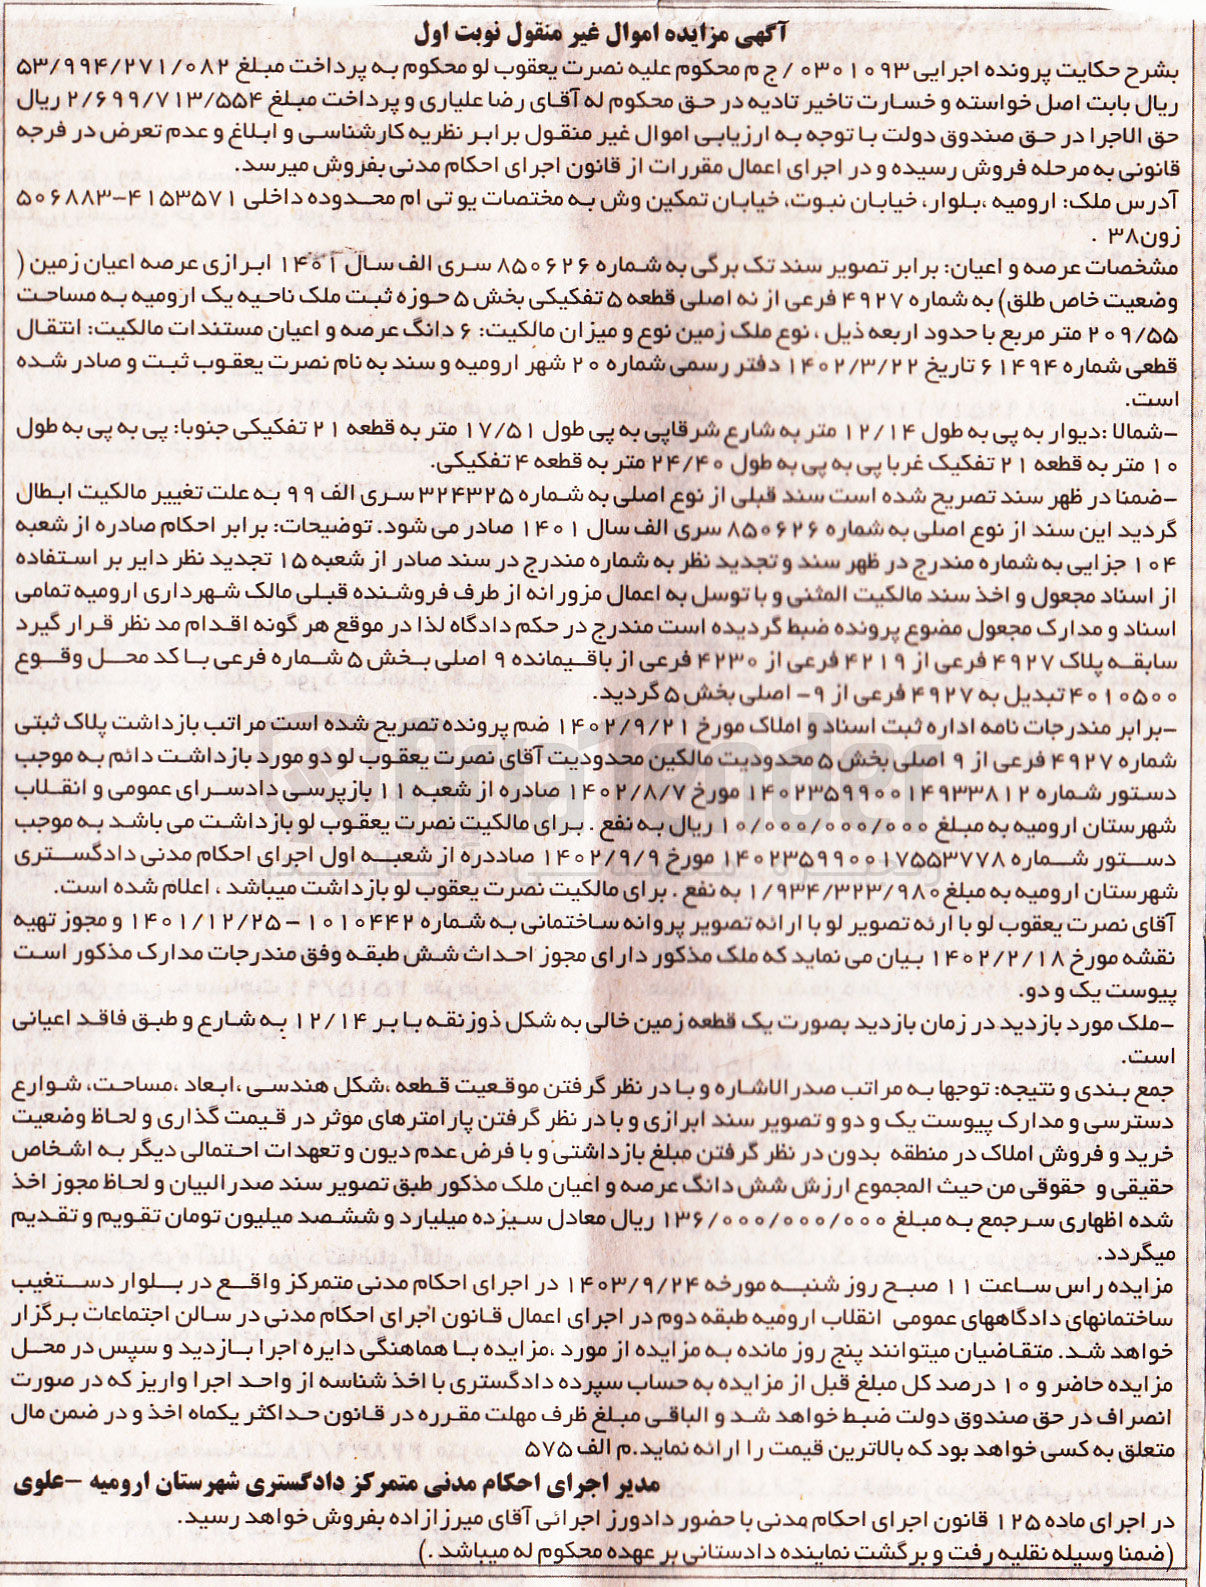 آگهی مزایده اموال غیر منقول نوبت اول
بشرح حکایت پرونده اجرایی ۰۳۰۱۰۹۳ / ج م محکوم علیه نصرت یعقوب لو محکوم به پرداخت مبلغ ۵۳/۹۹۴/۲۷۱/۰۸۲
ریال بابت اصل خواسته و خسارت تاخیر تادیه در حق محکوم له آقای رضا علیاری و پرداخت مبلغ ۲/۶۹۹/۷۱۳/۵۵۴ ریال
حق الاجرا در حق صندوق دولت با توجه به ارزیابی اموال غیر منقول برابر نظریه کارشناسی و ابلاغ و عدم تعرض در فرجه
قانونی به مرحله فروش رسیده و در اجرای اعمال مقررات از قانون اجرای احکام مدنی بفروش میرسد.
آدرس ملک: ارومیه ،بلوار، خیابان نبوت، خیابان تمکین وش به مختصات یو تی ام محدوده داخلی ۴۱۵۳۵۷۱-۵۰۶۸۸۳
زون۳۸ .
مشخصات عرصه و اعیان: برابر تصویر سند تک برگی به شماره ۸۵۰۶۲۶ سری الف سال ۱۴۰۱ ابرازی عرصه اعیان زمین (
وضعیت خاص طلق) به شماره ۴۹۲۷ فرعی از نه اصلی قطعه ۵ تفکیکی بخش ۵ حوزه ثبت ملک ناحیه یک ارومیه به مساحت
۲۰۹/۵۵ متر مربع با حدود اربعه ذیل ، نوع ملک زمین نوع و میزان مالکیت: ۶ دانگ عرصه و اعیان مستندات مالکیت: انتقال
قطعی شماره ۶۱۴۹۴ تاریخ ۱۴۰۲/۳/۲۲ دفتر رسمی شماره ۲۰ شهر ارومیه و سند به نام نصرت یعقوب ثبت و صادر شده
است.
-شمالا :دیوار به پی به طول ۱۲/۱۴ متر به شارع شرقاپی به پی طول ۱۷/۵۱ متر به قطعه ۲۱ تفکیکی جنوبا: پی به پی به طول
۱۰ متر به قطعه ۲۱ تفکیک غربا پی به پی به طول ۲۴/۴۰ متر به قطعه ۴ تفکیکی.
-ضمنا در ظهر سند تصریح شده است سند قبلی از نوع اصلی به شماره ۳۲۴۳۲۵ سری الف ۹۹ به علت تغییر مالکیت ابطال
گردید این سند از نوع اصلی به شماره ۸۵۰۶۲۶ سری الف سال ۱۴۰۱ صادر می شود. توضیحات: برابر احکام صادره از شعبه
۱۰۴ جزایی به شماره مندرج در ظهر سند و تجدید نظر به شماره مندرج در سند صادر از شعبه ۱۵ تجدید نظر دایر بر استفاده
از اسناد مجعول و اخذ سند مالکیت المثنی و با توسل به اعمال مزورانه از طرف فروشنده قبلی مالک شهرداری ارومیه تمامی
اسناد و مدارک مجعول مضوع پرونده ضبط گردیده است مندرج در حکم دادگاه لذا در موقع هر گونه اقدام مد نظر قرار گیرد
سابقه پلاک ۴۹۲۷ فرعی از ۴۲۱۹ فرعی از ۴۲۳۰ فرعی از باقیمانده ۹ اصلی بخش ۵ شماره فرعی با کد محل وقوع
۴۰۱۰۵۰۰ تبدیل به ۴۹۲۷ فرعی از ۹- اصلی بخش ۵ گردید.
-برابر مندرجات نامه اداره ثبت اسناد و املاک مورخ ۱۴۰۲/۹/۲۱ ضم پرونده تصریح شده است مراتب بازداشت پلاک ثبتی
شماره ۴۹۲۷ فرعی از ۹ اصلی بخش ۵ محدودیت مالکین محدودیت آقای نصرت یعقوب لو دو مورد بازداشت دائم به موجب
دستور شماره ۱۴۰۲۳۵۹۹۰۰۱۴۹۳۳۸۱۲ مورخ ۱۴۰۲/۸/۷ صادره از شعبه ۱۱ بازپرسی دادسرای عمومی و انقلاب
شهرستان ارومیه به مبلغ ۱۰/۰۰۰/۰۰۰/۰۰۰ ریال به نفع . برای مالکیت نصرت یعقوب لو بازداشت می باشد به موجب
دستور شماره ۱۴۰۲۳۵۹۹۰۰۱۷۵۵۳۷۷۸ مورخ ۱۴۰۲/۹/۹ صاددره از شعبه اول اجرای احکام مدنی دادگستری
شهرستان ارومیه به مبلغ ۱/۹۳۴/۳۲۳/۹۸۰ به نفع . برای مالکیت نصرت یعقوب لو بازداشت میباشد ، اعلام شده است.
آقای نصرت یعقوب لو با ارئه تصویر لو با ارائه تصویر پروانه ساختمانی به شماره ۱۰۱۰۴۴۲ – ۱۴۰۱/۱۲/۲۵ و مجوز تهیه
نقشه مورخ ۱۴۰۲/۲/۱۸ بیان می نماید که ملک مذکور دارای مجوز احداث شش طبقه وفق مندرجات مدارک مذکور است
پیوست یک و دو.
-ملک مورد بازدید در زمان بازدید بصورت یک قطعه زمین خالی به شکل ذوزنقه با بر ۱۲/۱۴ به شارع و طبق فاقد اعیانی
است.
جمع بندی و نتیجه: توجها به مراتب صدرالاشاره و با در نظر گرفتن موقعیت قطعه ،شکل هندسی ،ابعاد ،مساحت، شوارع
دسترسی و مدارک پیوست یک و دو و تصویر سند ابرازی و با در نظر گرفتن پارامترهای موثر در قیمت گذاری و لحاظ وضعیت
خرید و فروش املاک در منطقه بدون در نظر گرفتن مبلغ بازداشتی و با فرض عدم دیون و تعهدات احتمالی دیگر به اشخاص
حقیقی و حقوقی من حیث المجموع ارزش شش دانگ عرصه و اعیان ملک مذکور طبق تصویر سند صدرالبیان و لحاظ مجوز اخذ
شده اظهاری سر جمع به مبلغ ۱۳۶/۰۰۰/۰۰۰/۰۰۰ ریال معادل سیزده میلیارد و ششصد میلیون تومان تقویم و تقدیم
میگردد.
مزایده راس ساعت ۱۱ صبح روز شنبه مورخه ۱۴۰۳/۹/۲۴ در اجرای احکام مدنی متمرکز واقع در بلوار دستغیب
ساختمانهای دادگاههای عمومی انقلاب ارومیه طبقه دوم در اجرای اعمال قانون اجرای احکام مدنی در سالن اجتماعات برگزار
خواهد شد. متقاضیان میتوانند پنج روز مانده به مزایده از مورد ،مزایده با هماهنگی دایره اجرا بازدید و سپس در محل
مزایده حاضر و ۱۰ درصد کل مبلغ قبل از مزایده به حساب سپرده دادگستری با اخذ شناسه از واحد اجرا واریز که در صورت
انصراف در حق صندوق دولت ضبط خواهد شد و الباقی مبلغ ظرف مهلت مقرره در قانون حداکثر یکماه اخذ و در ضمن مال
متعلق به کسی خواهد بود که بالاترین قیمت را ارائه نماید.م الف ۵۷۵
مدیر اجرای احکام مدنی متمرکز دادگستری شهرستان ارومیه –علوی
در اجرای ماده ۱۲۵ قانون اجرای احکام مدنی با حضور دادورز اجرائی آقای میرزازاده بفروش خواهد رسید.
(ضمنا وسیله نقلیه رفت و برگشت نماینده دادستانی بر عهده محکوم له میباشد .)